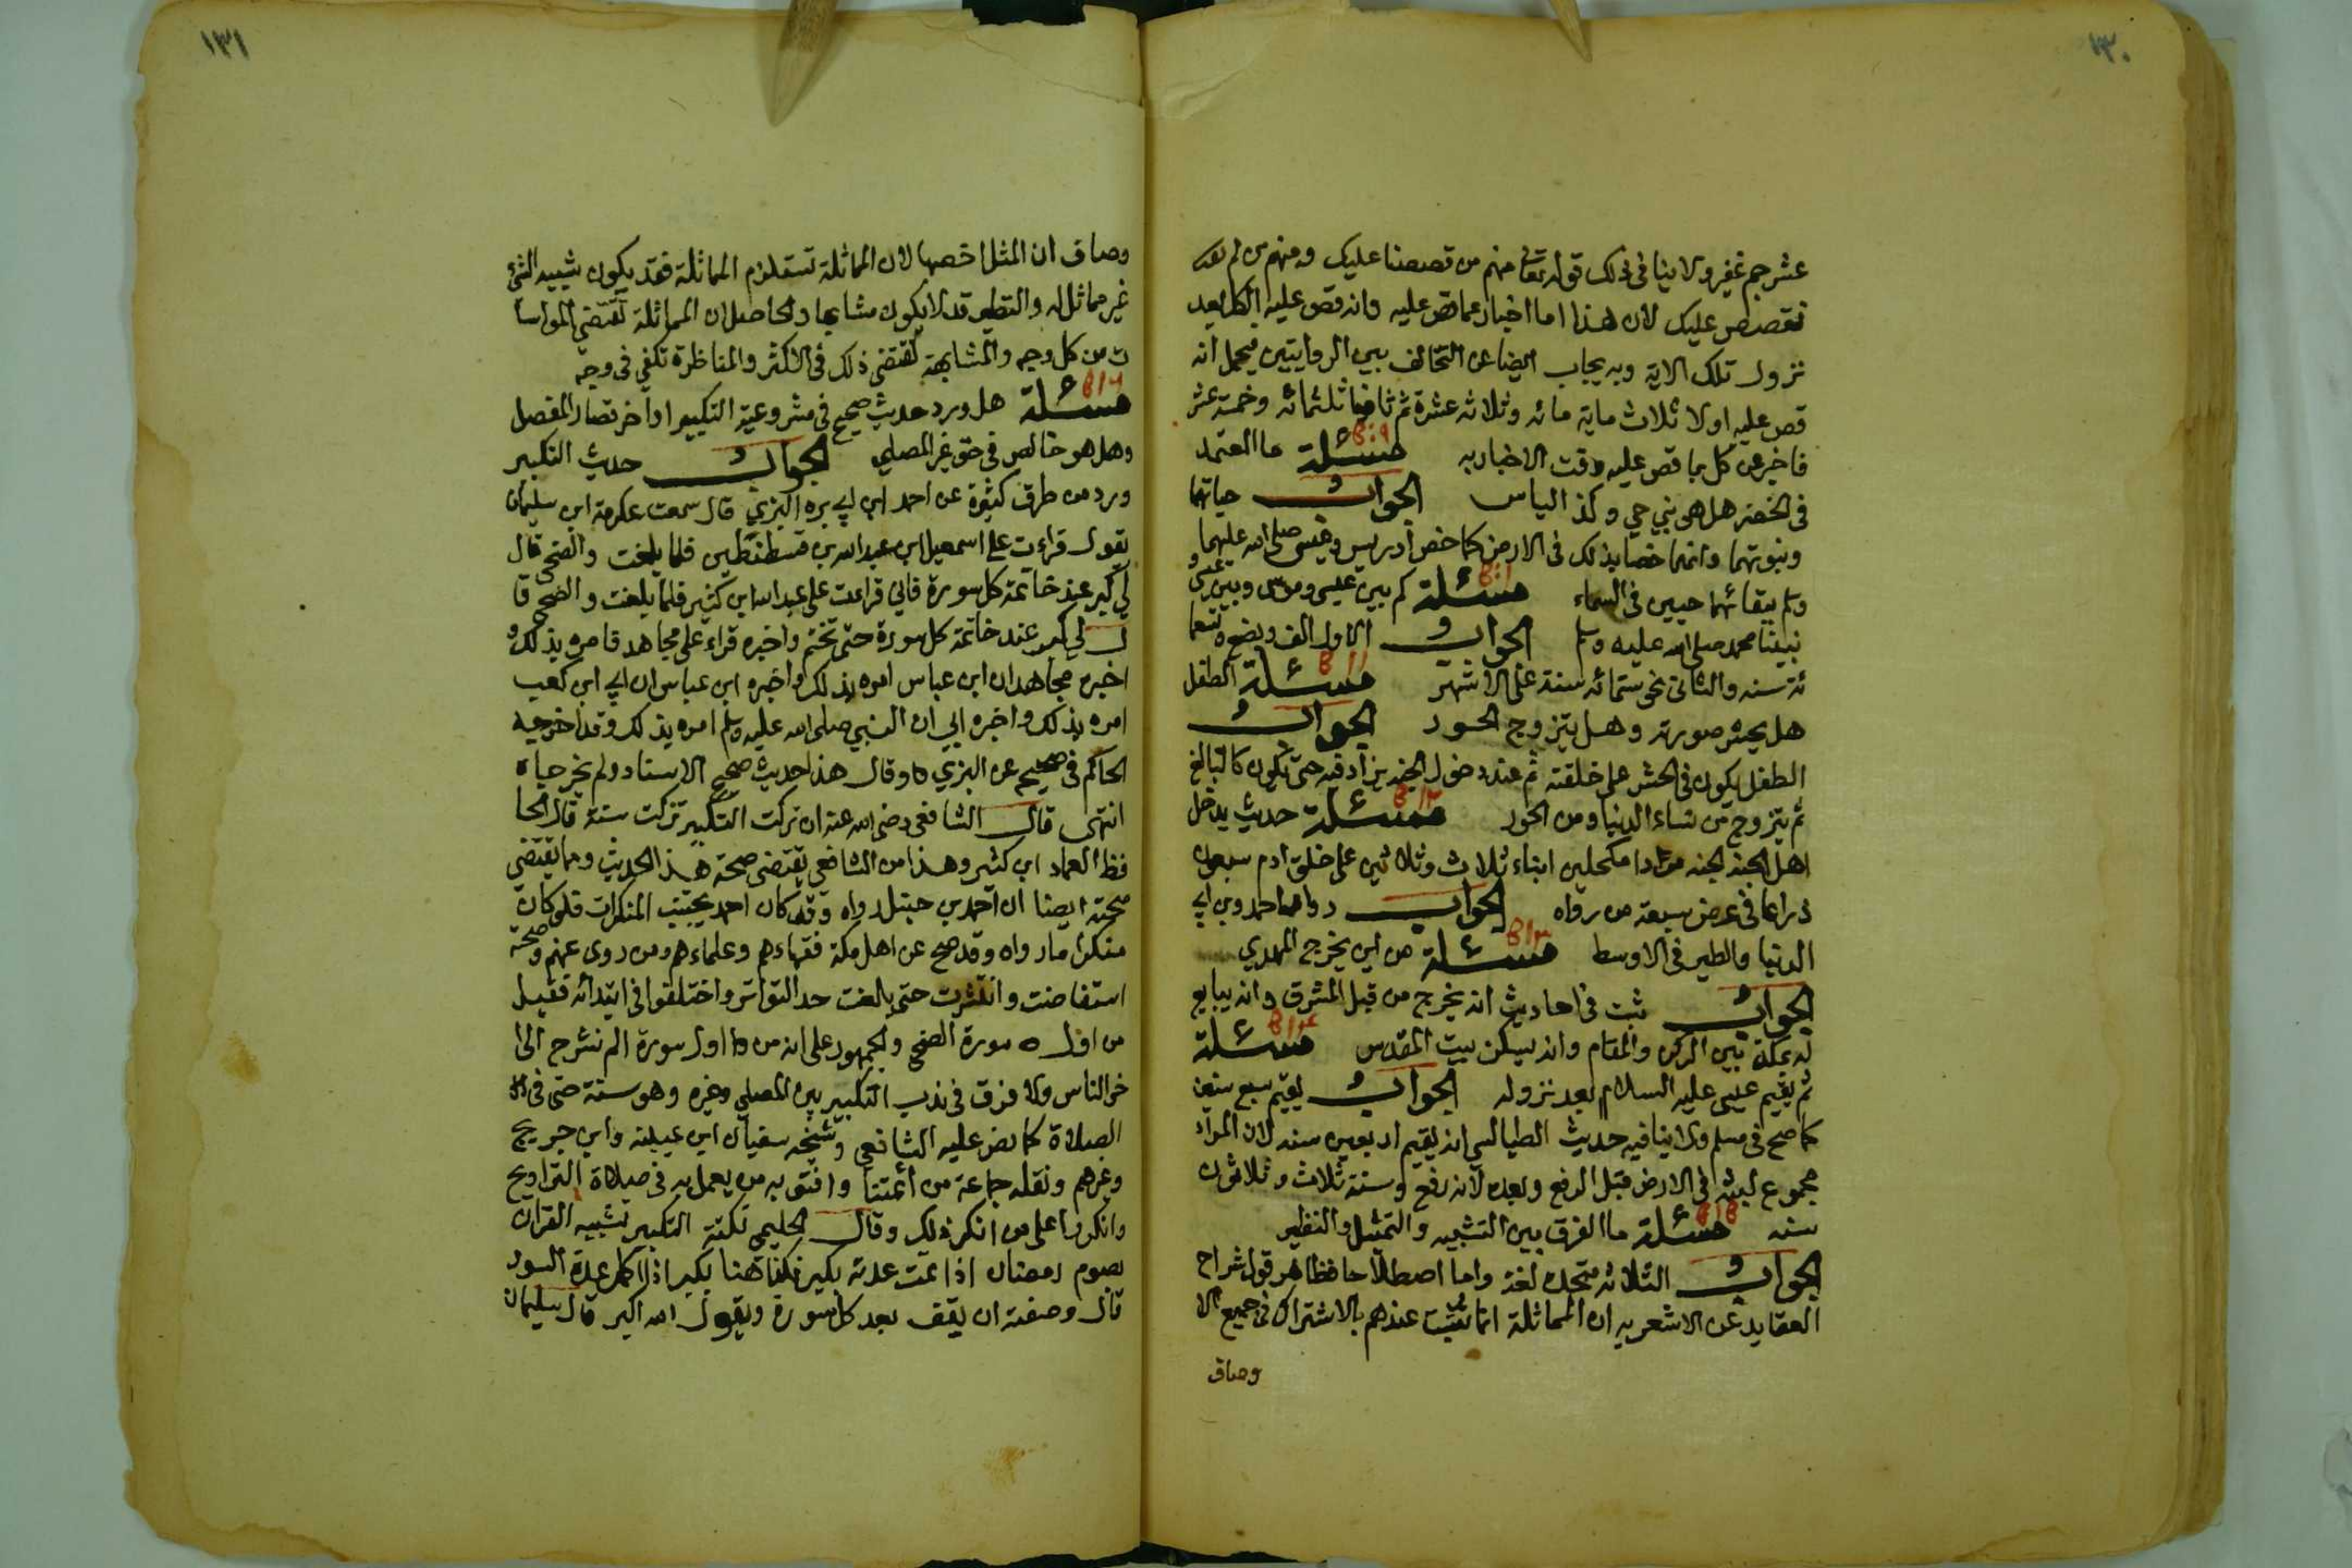 ١٣٠
عشر جم غفير ولا ينافى ذلك قوله تعالى منهم من قصصنا عليك ومنهم من لم
نقصص عليك لان هذا اما اخبار عما قص عليه وانه قص عليه الكل بعد
نزول تلك الاية وبه يجاب ايضا عن التخالف بين الروايتين فيحمل انه
قص عليه اولا ثلاث ماية مائه وثلاثه عشرة ثم ثانيا ثلثمائه وخمسة عشر
فاخبر عن كل بما قص عليه وقت الاخبار به مسئلة ما المعتمد
فى الخضر هل هى نبي حي وكذ الياس الجواب حياتهما
ونبوتهما وانهما خصا بذلك فى الارض كما خص ادريس وعيسى صلى الله عليهما و
وسلم ببقائهما حيين فى السماء مسئلة كم بين عيسى وموسى وبين عيسى و
نبينا محمد صلى الله عليه وسلم الجواب الاول الف وبضع وتسعما
ئة سنه والثانى نحو ستمائه سنة على الاشهر مسئلة الطفل
هل يحشر صورته وهل يتزوج الحور الجواب
الطفل يكون فى الحشر على خلقته ثم عند دخول الجنه يزاد فيه حتى يكون كالبالغ
ثم يتزوج من نساء الدنيا ومن الحور مسئلة حديث يدخل
اهل الجنه الجنه مردا مكحلين ابناء ثلاث وثلاثين على خلق ادم سبعون
ذراعا فى عرض سبعة من رواه الجواب رواه احمد وبن ابي
الدنيا والطبر فى الاوسط مسئلة من اين يخرج المهدي
الجواب ثبت فى احاديث انه يخرج من قبل المشرق وانه يبايع
له بمكة بين الركن والمقام وانه يسكن بيت المقدس مسئلة
ثم يقيم عيسى عليه السلام بعد نزوله الجواب يقيم سبع سنين
كما صح فى مسلم ولا ينافيه حديث الطيالسي انه يقيم اربعين سنه لان المراد
مجموع لبثه فى الارض قبل الرفع وبعده لانه رفع وسنة ثلاث وثلاثون
سنه مسئلة ما الفرق بين التشبيه والتمثيل والنظير
الجواب الثلاثه متحده لغة واما اصطلاحا فظاهر قول شراح
العقايد عن الاشعريه ان المماثلة انما تثبت عندهم بالاشتراك فى جميع الا
وصاف
١٣١
وصاف ان المثل اخصها لان المماثلة تستلزم المماثلة فقد يكون شبيه الشئ
غير مماثل له والنظير قد لا يكون مشابها والحاصل ان المماثلة تقتضى المواسا
ت من كل وجه والمشابهة تقتضى ذلك فى الاكثر والمناظرة تكفى فى وجه
مسئلة هل ورد حديث صحيح فى مشروعية التكبير اواخر قصار المفصل
وهل هو خالص فى حق غير المصلي الجواب حديث التكبير
ورد من طرق كثيرة عن احمد ابن ابي بره البزي قال سمعت عكرمة ابن سليمان
يقول قراءت على اسمعيل ابن عبد الله بن قسطنطين فلما بلغت والضحى قال
لي كبر عند خاتمة كل سورة فاني قراءت على عبد الله ابن كثير فلما بلغت والضحى قا
ل لي كبر عند خاتمة كل سورة حتى تختم واخبره قراء على مجاهد فامره بذلك و
اخبره مجاهد ان ابن عباس امره بذلك واخبره ابن عباس ان ابي ابن كعب
امره بذلك واخبره ابي ان النبي صلى الله عليه وسلم امره بذلك وقد اخرجه
الحاكم فى صحيح عن البزي وقال هذا حديث صحيح الاسناد ولم يخرجاه
انتهى قال الشافعى رضى الله عنه ان تركت التكبير تركت سنة قال الحا
فظ العماد ابن كثير وهذا من الشافعى يقتضى صحة هذ الحديث ومما يقتضى
صحته ايضا ان احمد بن حنبل رواه وقد كان احمد يجتنب المنكرات فلو كان
منكرا ما رواه وقد صح عن اهل مكة فقهاءهم وعلماءهم ومن روى عنهم وصحة
استفاضت وانتشرت حتى بلغت حد التواتر واختلفوا فى ابتدائه فقيل
من اول سورة الضحى والجمهور على انه من اول سورة الم نشرح الى ا
خر الناس ولا فرق فى ندب التكبير بين المصلي وغيره وهو سنة حتى فى
الصلاة كما نص عليه الشافعى وشيخه سفيان ابن عيينه وابن جريج
وغيرهم ونقله جماعة من أئمتنا وافتو به من يعمل به فى صلاة التراويح
وانكروا على من انكر ذلك وقال الحليمى نكتة التكبير تشبيه القران
بصوم رمضان اذا تمت عدته يكبر فكذا هنا يكبر اذا اكمل عدة السور
قال وصفته ان يقف بعد كل سورة ويقول الله اكبر قال سليمان